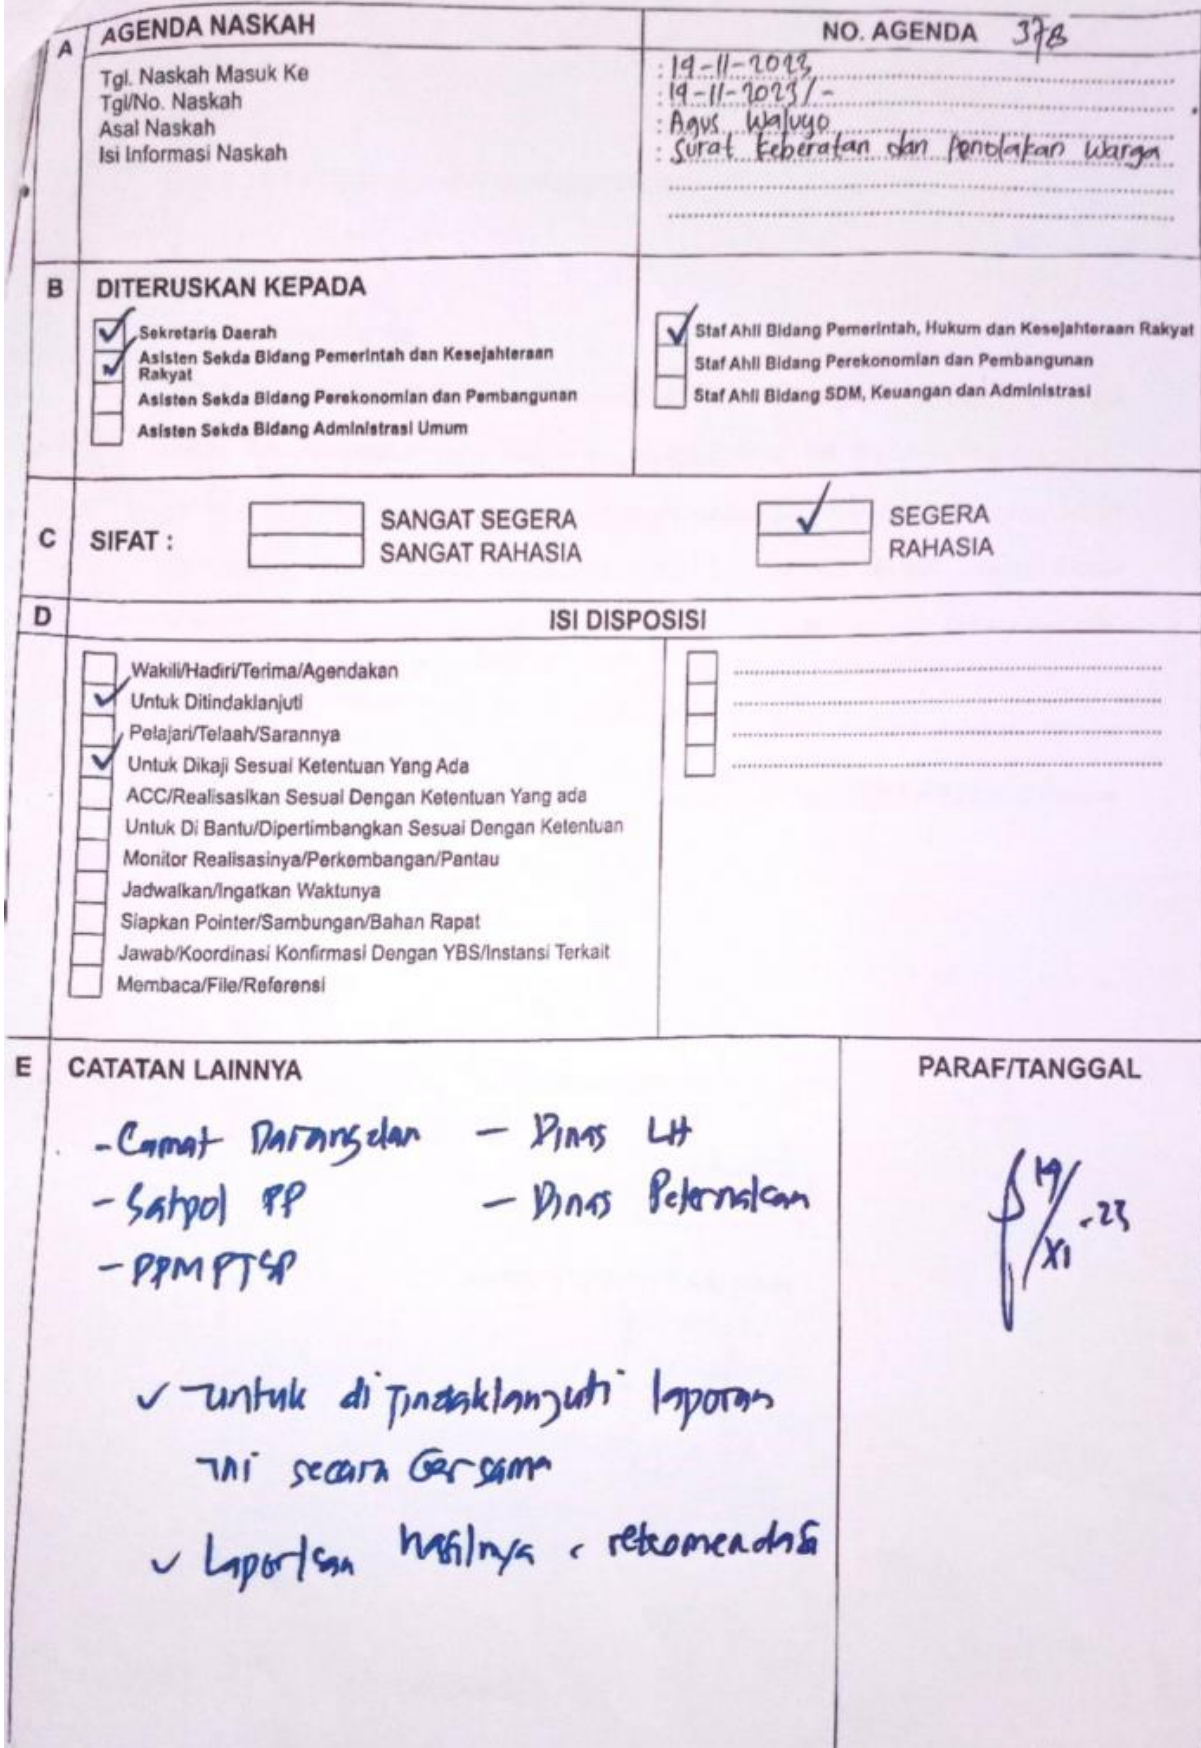 A AGENDA NASKAH
NO. AGENDA 378
Tgl. Naskah Masuk Ke : 19-11-2023
Tgl/No. Naskah : 19-11-2023/-
Asal Naskah : Agus Waluyo
Isi Informasi Naskah : Surat keberatan dan Penolakan Warga
B DITERUSKAN KEPADA
Sekretaris Daerah
Asisten Sekda Bidang Pemerintah dan Kesejahteraan
Rakyat
Asisten Sekda Bidang Perekonomian dan Pembangunan
Asisten Sekda Bidang Administrasi Umum
Staf Ahli Bidang Pemerintah, Hukum dan Kesejahteraan Rakyat
Staf Ahli Bidang Perekonomian dan Pembangunan
Staf Ahli Bidang SDM, Keuangan dan Administrasi
C SIFAT :
SANGAT SEGERA
SANGAT RAHASIA
SEGERA
RAHASIA
D ISI DISPOSISI
Wakili/Hadiri/Terima/Agendakan
Untuk Ditindaklanjuti
Pelajari/Telaah/Sarannya
Untuk Dikaji Sesuai Ketentuan Yang Ada
ACC/Realisasikan Sesuai Dengan Ketentuan Yang ada
Untuk Di Bantu/Dipertimbangkan Sesuai Dengan Ketentuan
Monitor Realisasinya/Perkembangan/Pantau
Jadwalkan/Ingatkan Waktunya
Siapkan Pointer/Sambungan/Bahan Rapat
Jawab/Koordinasi Konfirmasi Dengan YBS/Instansi Terkait
Membaca/File/Referensi
E CATATAN LAINNYA
PARAF/TANGGAL
- Camat Darangdan - Dinas LH
- Satpol PP - Dinas Peternakan
- PPMPTSP
19/XI-23
✓ untuk di Tindaklanjuti laporan
ini secara Bersama
✓ Laporkan hasilnya rekomendasi